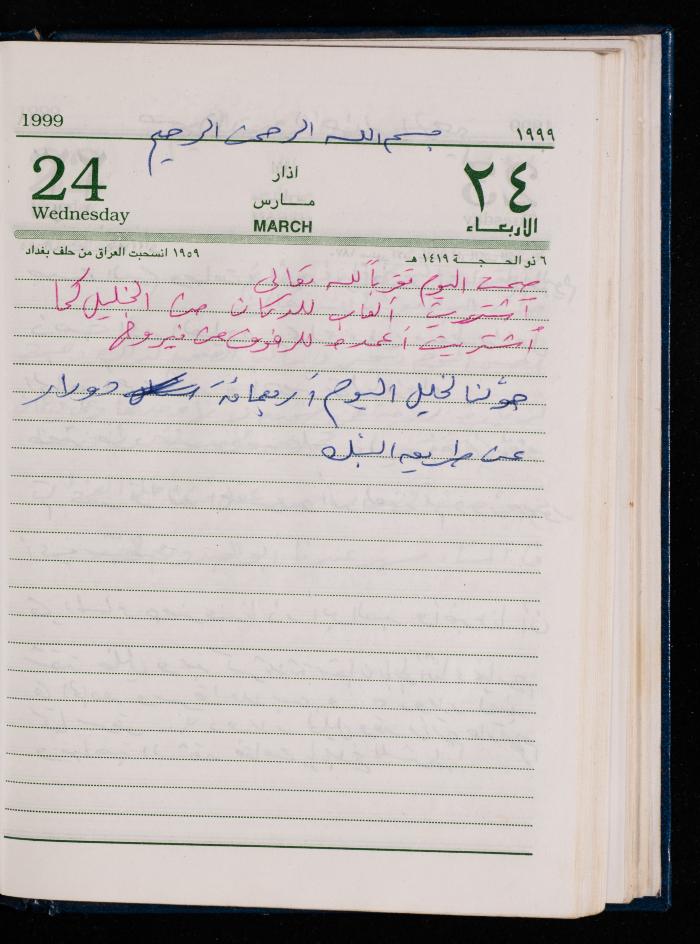 1999
١٩٩٩
بسم الله الرحمن الرحيم
24
Wednesday
اذار
مارس
MARCH
٢٤
الاربعاء
٦ ذو الحجة ١٤١٩ هـ
١٩٥٩ انسحبت العراق من حلف بغداد
صمت اليوم تقرباً لله تعالى
اشتريت ألعاب للدكان من الخليل كما
أشتريت أعمدة للرفوف من
حولنا لخليل اليوم أربعمائة دولار
عن طريق البنك